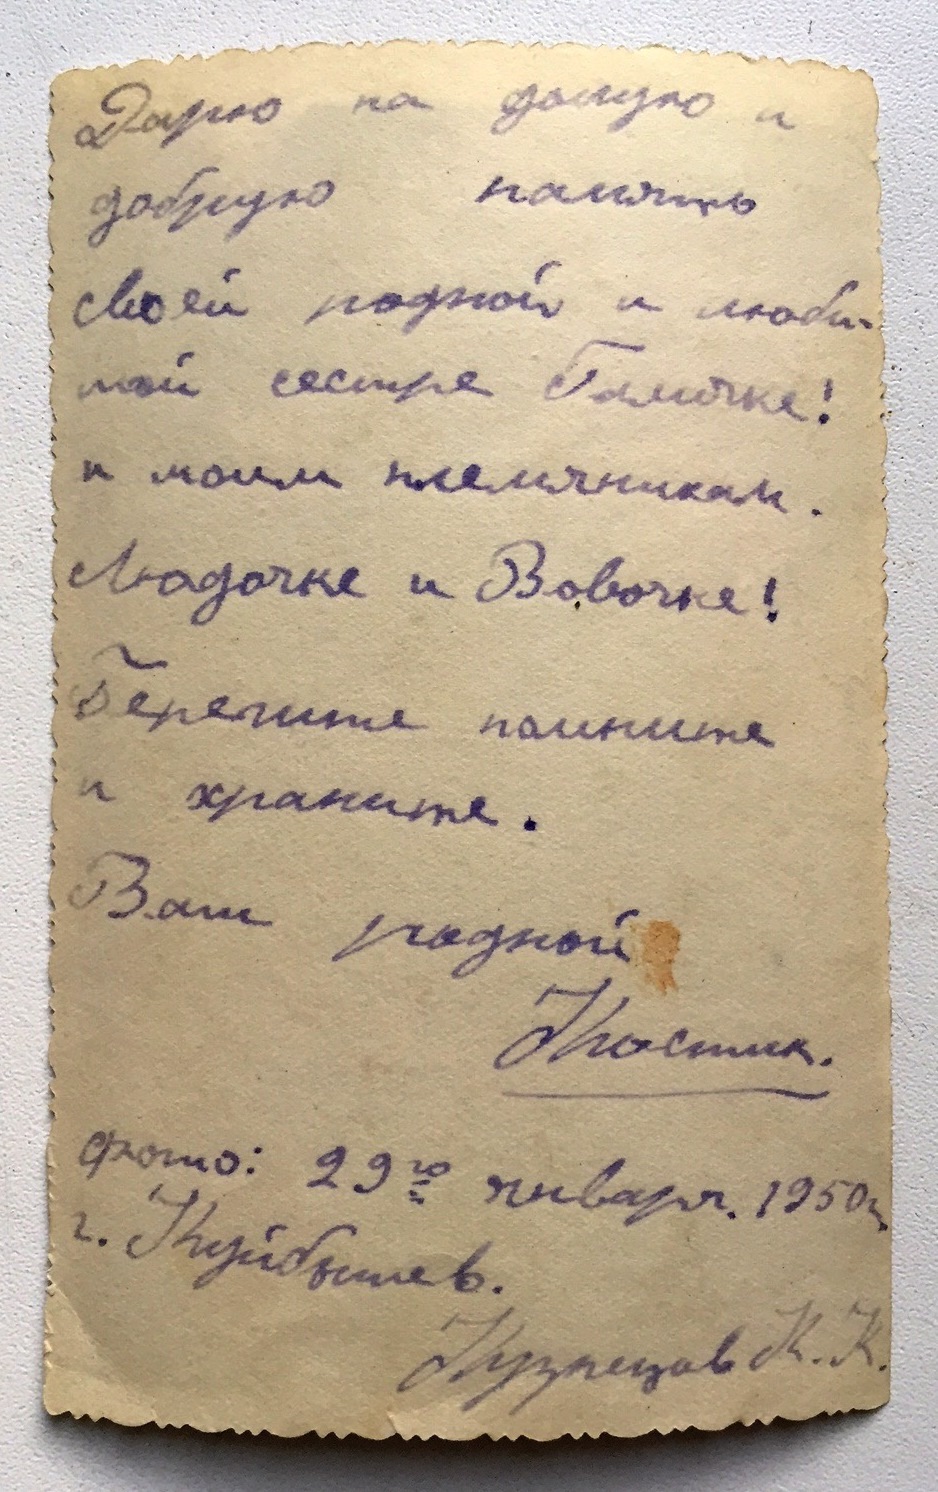 Дарю на долгую и
добрую память
своей родной и люби-
мой сестре Галичке!
и моим племянникам.
Людочке и Вовочке!
Берегите помните
и храните.
Ваш родной
Костик.
фото: 29го января. 1950г.
г. Куйбышев.
Кузнецов К. К.